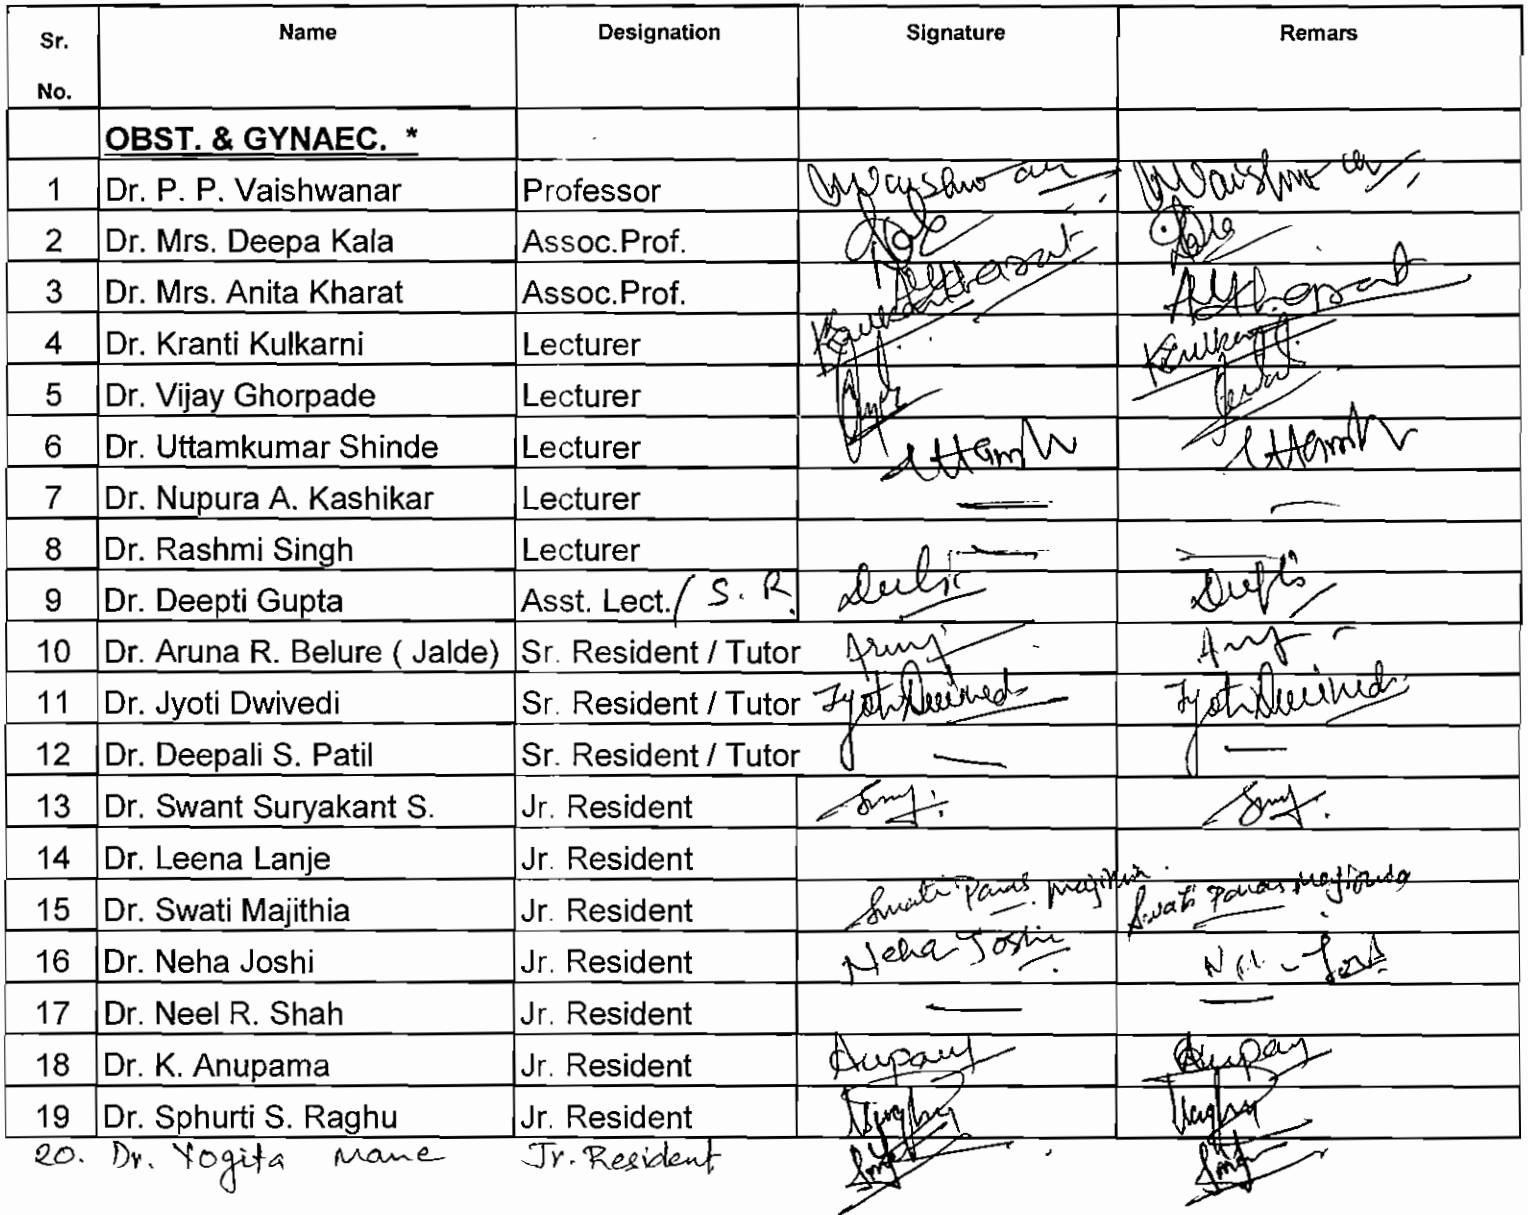 Sr. No. Name Designation Signature Remars
OBST. & GYNAEC. *
1 Dr. P. P. Vaishwanar Professor
2 Dr. Mrs. Deepa Kala Assoc.Prof.
3 Dr. Mrs. Anita Kharat Assoc.Prof.
4 Dr. Kranti Kulkarni Lecturer
5 Dr. Vijay Ghorpade Lecturer
6 Dr. Uttamkumar Shinde Lecturer
7 Dr. Nupura A. Kashikar Lecturer
8 Dr. Rashmi Singh Lecturer
9 Dr. Deepti Gupta Asst. Lect. / S. R.
10 Dr. Aruna R. Belure ( Jalde) Sr. Resident / Tutor
11 Dr. Jyoti Dwivedi Sr. Resident / Tutor
12 Dr. Deepali S. Patil Sr. Resident / Tutor
13 Dr. Swant Suryakant S. Jr. Resident
14 Dr. Leena Lanje Jr. Resident
15 Dr. Swati Majithia Jr. Resident
16 Dr. Neha Joshi Jr. Resident Neha Joshi
17 Dr. Neel R. Shah Jr. Resident
18 Dr. K. Anupama Jr. Resident
19 Dr. Sphurti S. Raghu Jr. Resident
20. Dr. Yogita Mane Jr. Resident